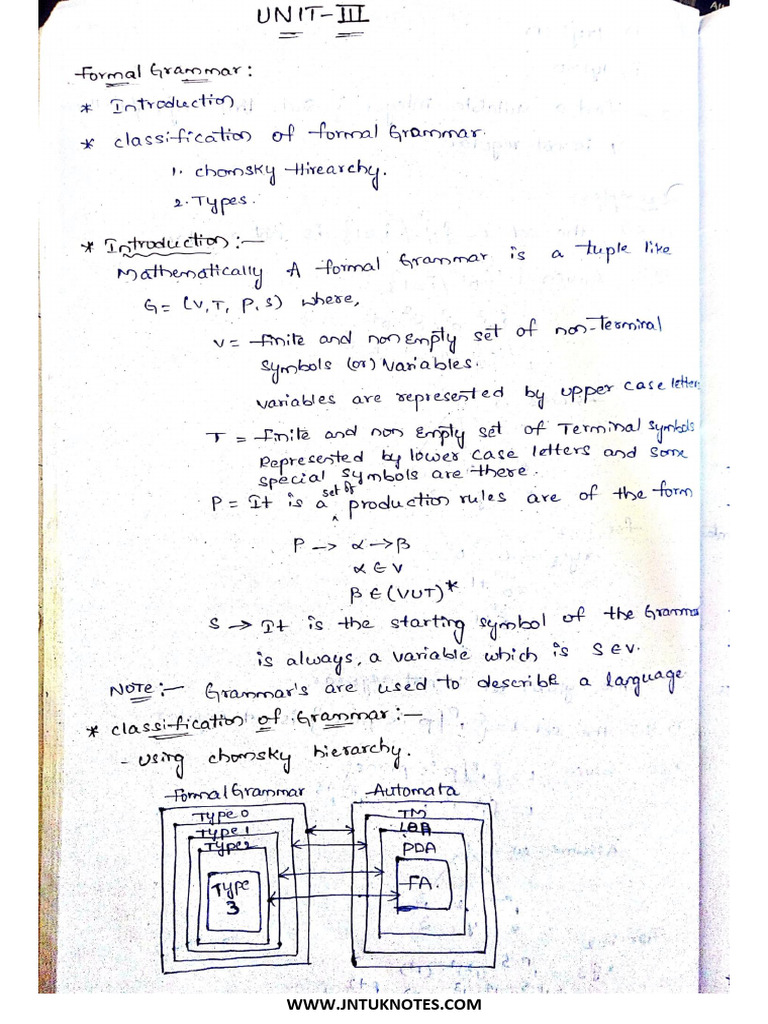 UNIT-III
Formal Grammar:
* Introduction
* Classification of formal Grammar.
1. Chomsky Hirearchy.
2. Types.
* Introduction:-
Mathematically A formal Grammar is a tuple like
G = (V, T, P, S) where,
V = finite and non Empty set of non-Terminal
Symbols (or) Variables.
Variables are represented by upper case letters
T = finite and non Empty set of Terminal Symbols
Represented by lower case letters and some
special symbols are there.
P = It is a set of production rules are of the form
P → α → β
α ∈ V
β ∈ (VUT)*
S → It is the starting symbol of the Gramma
is always, a variable which is S ∈ V.
NOTE:- Grammar's are used to describe a language
* Classification of Grammar:-
- using chomsky hierarchy.
Formal Grammar Automata
Type 0 TM
Type 1 LBA
Type 2 PDA
Type 3 FA.
WWW.JNTUKNOTES.COM